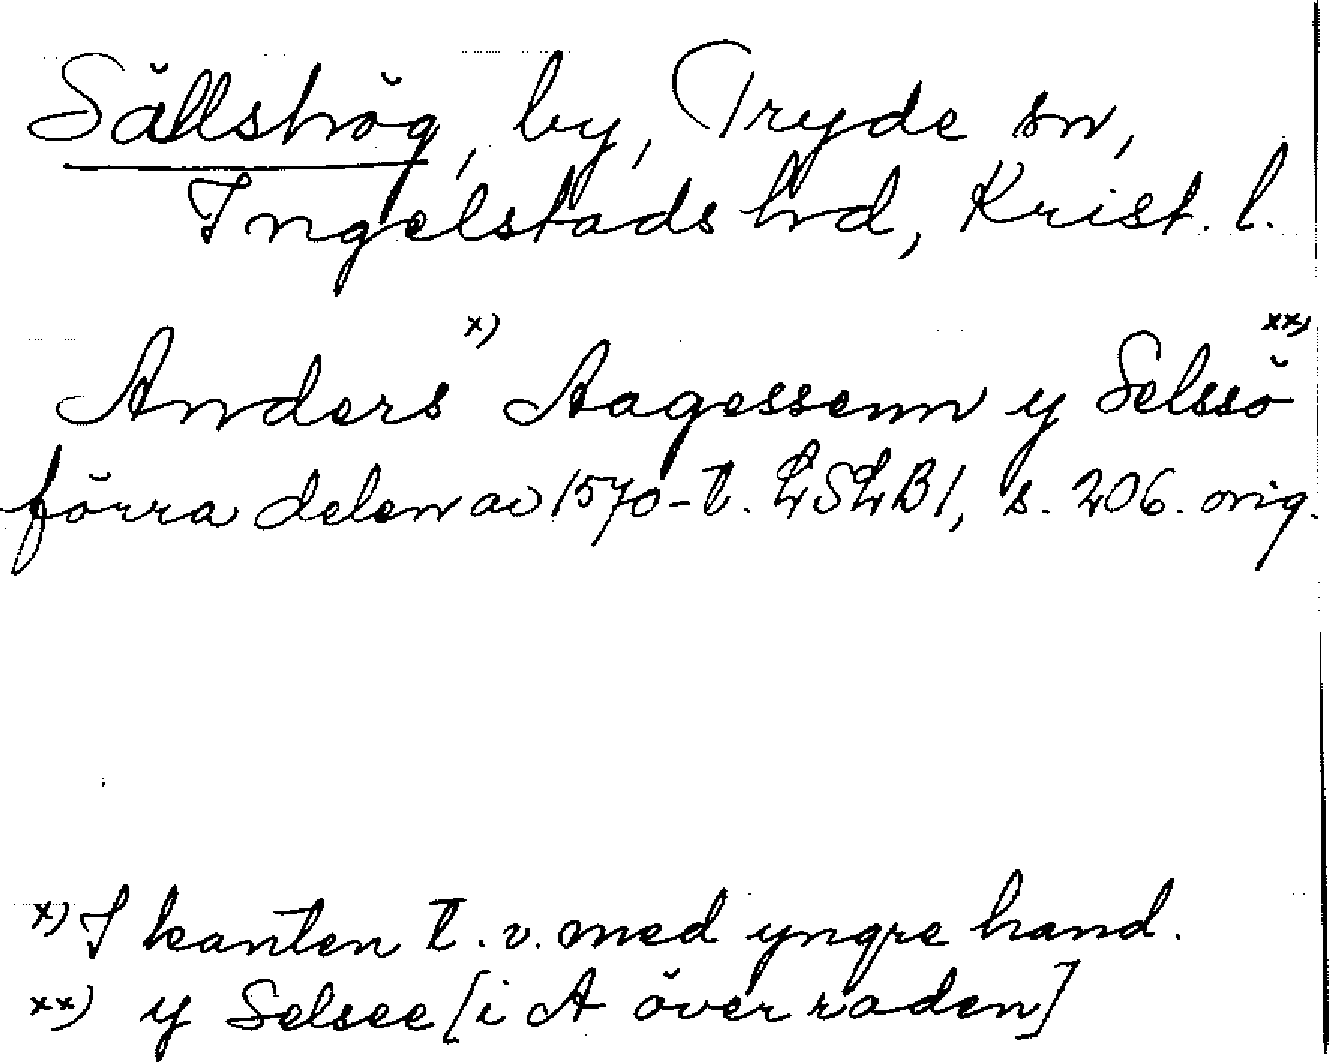 Sällshög, by, Tryde sn,
Ingelstads hrd, Krist. l.
Anders x) Aagessenn y Selssö xx)
förra delen av 1570-t. LSLB1, s. 206. orig.
x) I kanten t.v. med yngre hand.
xx) y Selsee [i A över raden]